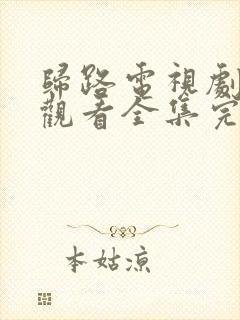 歸路電視劇
觀看全集完
本姑涼